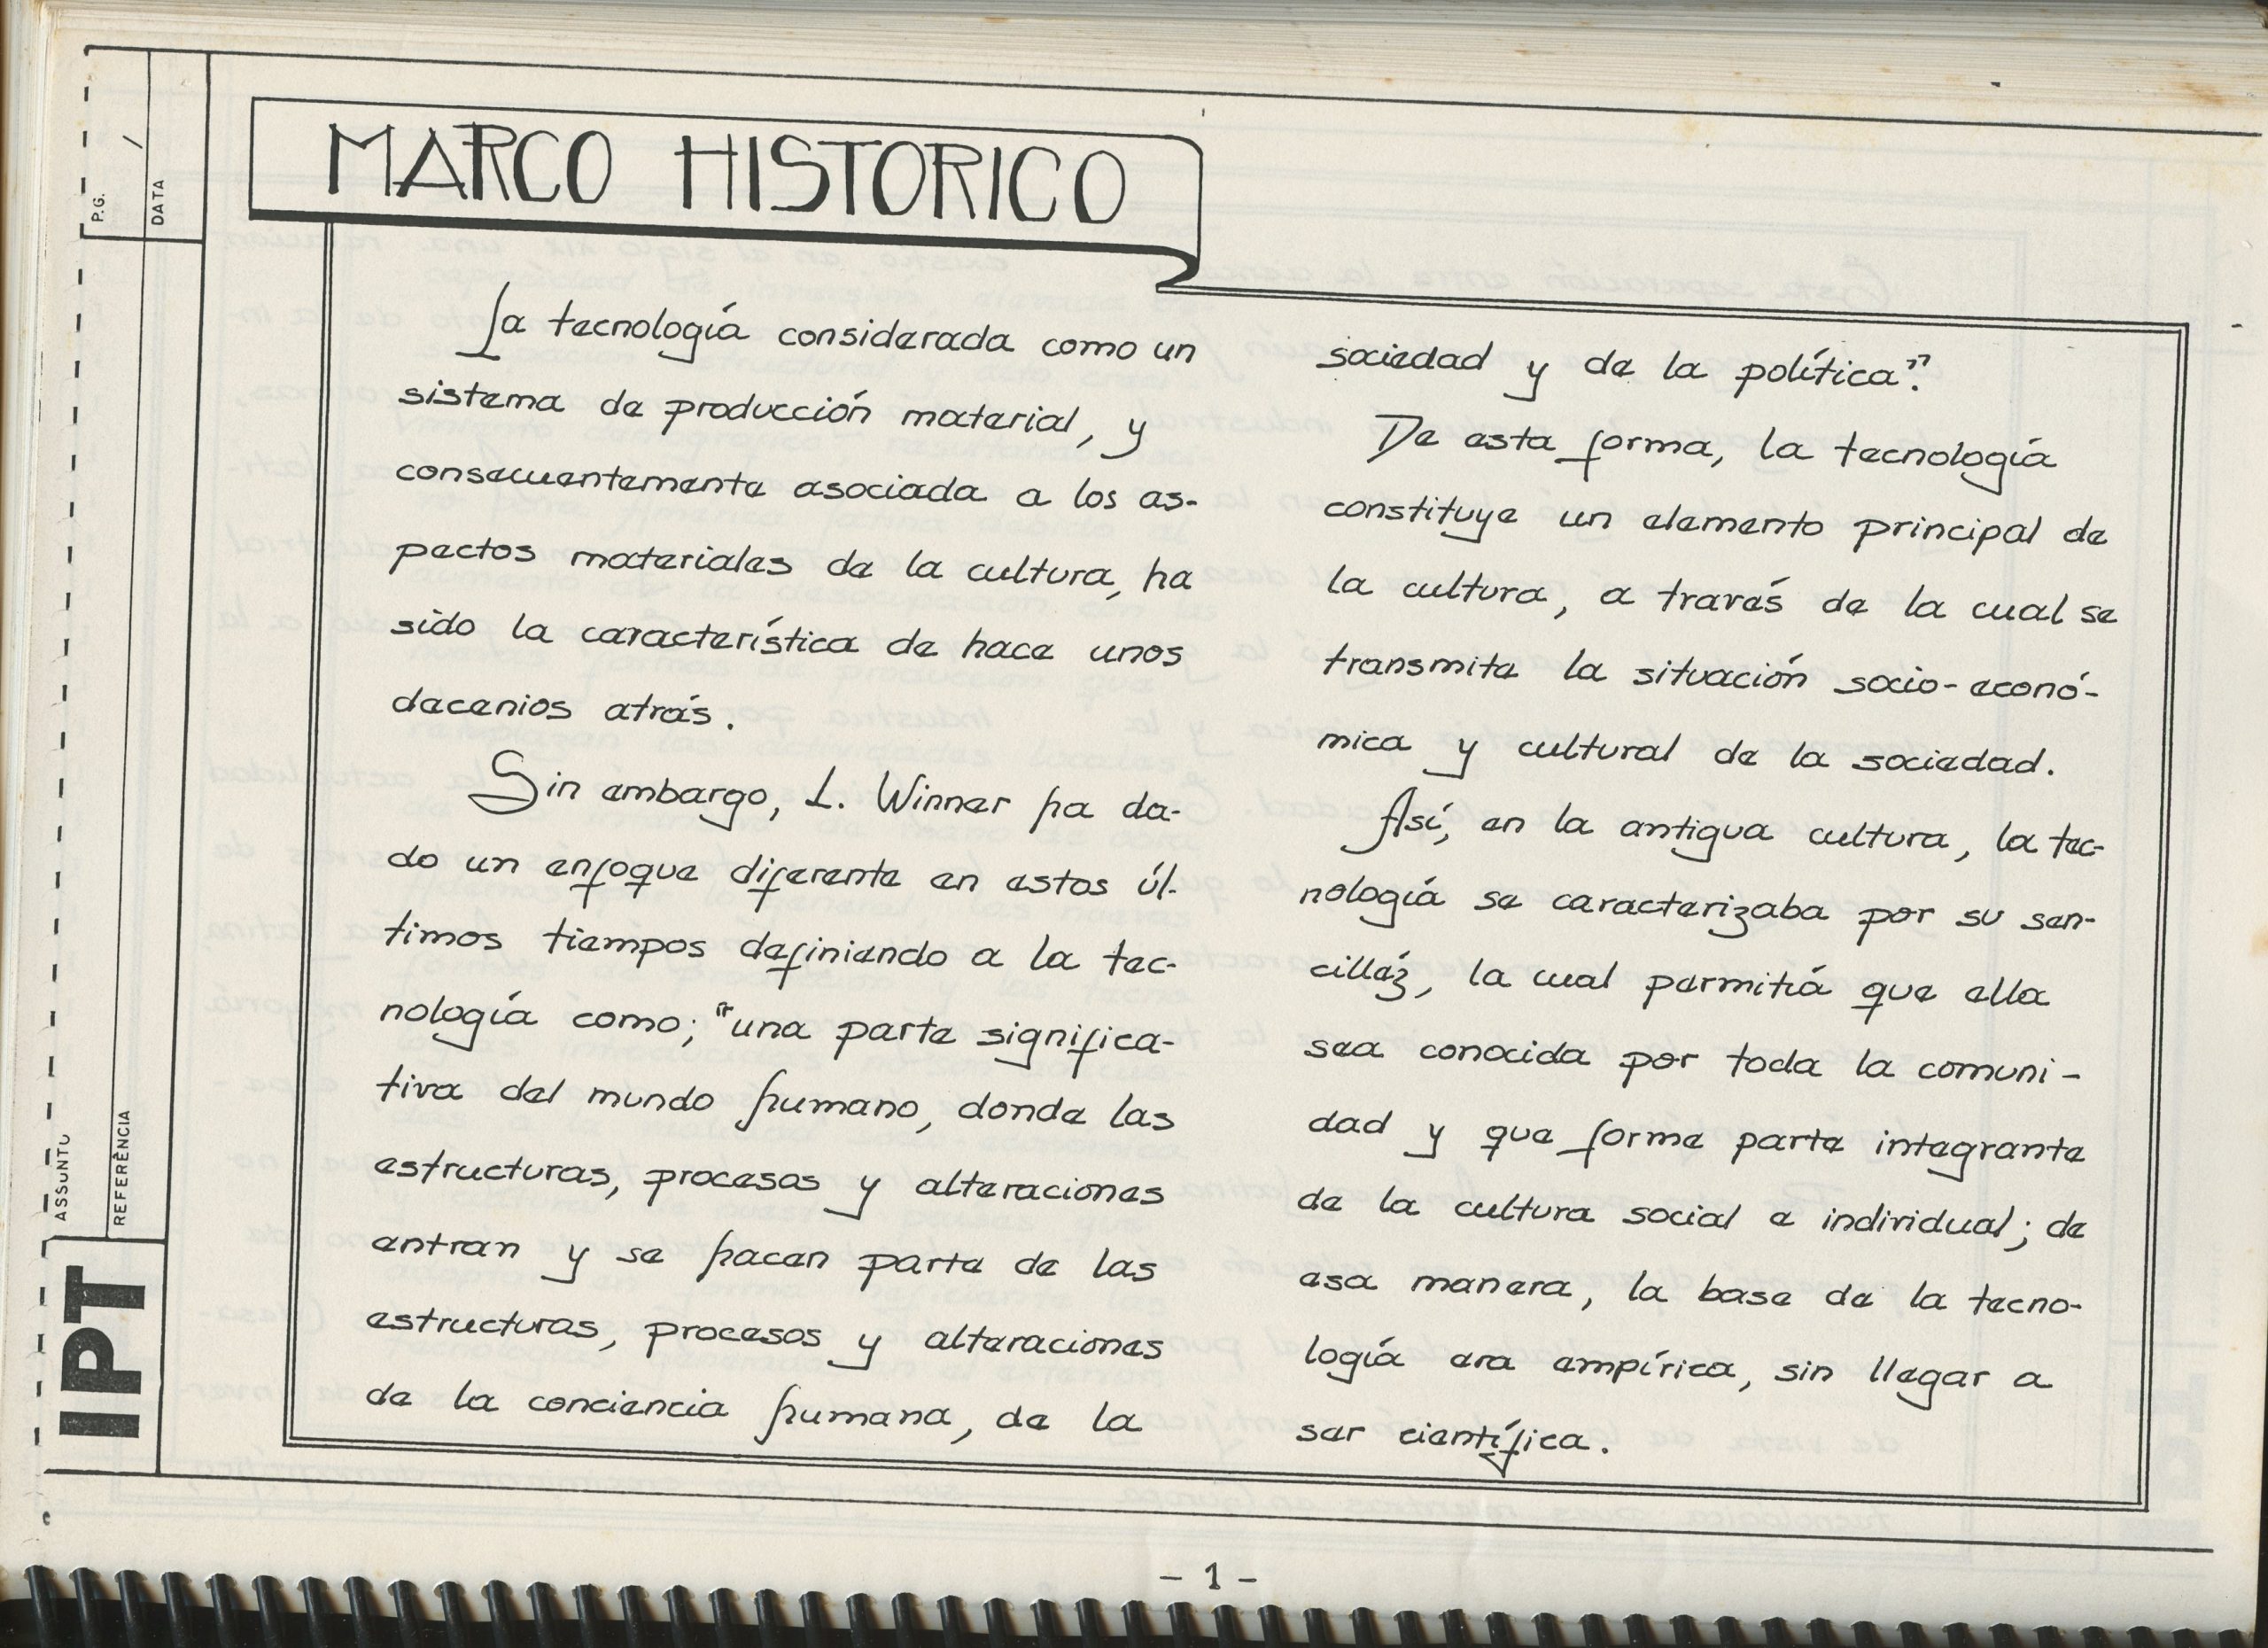 MARCO HISTORICO
La tecnología considerada como un
sistema de producción material, y
consecuentemente asociada a los as-
pectos materiales de la cultura, ha
sido la característica de hace unos
decenios atrás.
Sin embargo, L. Winner ha da-
do un enfoque diferente en estos úl-
timos tiempos definiendo a la tec-
nología como; "una parte significa-
tiva del mundo humano, donde las
estructuras, procesos y alteraciones
entran y se hacen parte de las
estructuras, procesos y alteraciones
de la conciencia humana, de la
sociedad y de la política".
De esta forma, la tecnología
constituye un elemento principal de
la cultura, a través de la cual se
transmite la situación socio-econó-
mica y cultural de la sociedad.
Así, en la antigua cultura, la tec-
nología se caracterizaba por su sen-
cilléz, la cual permitía que ella
sea conocida por toda la comuni-
dad y que forme parte integrante
de la cultura social e individual; de
esa manera, la base de la tecno-
logía era empírica, sin llegar a
ser científica.
P.G.
DATA
/
ASSUNTO
REFERÊNCIA
IPT
- 1 -